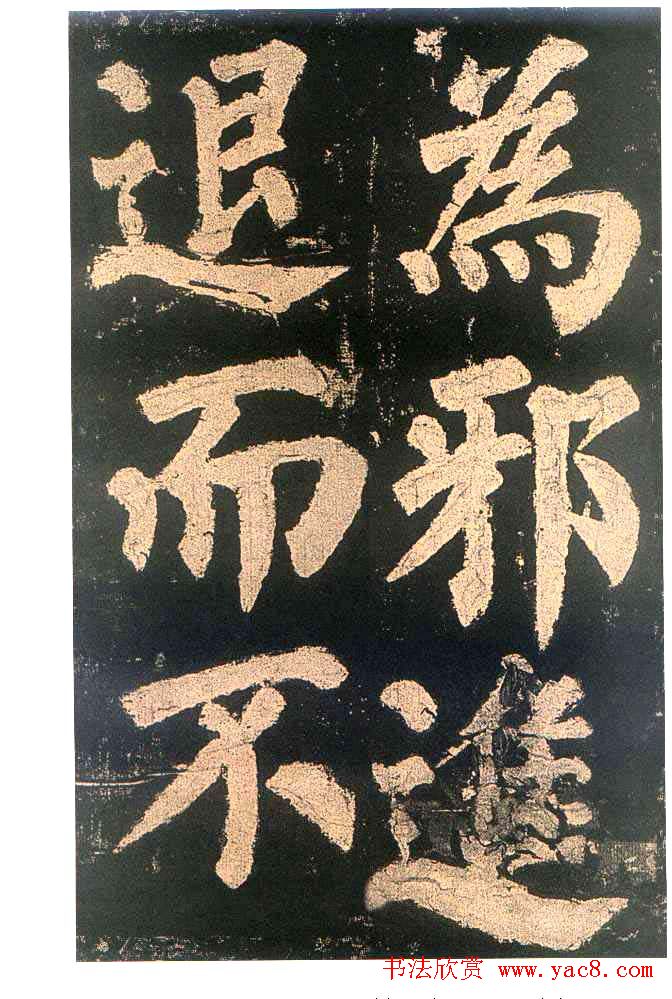 為邪進
退而不
书法欣赏 www.yac8.com